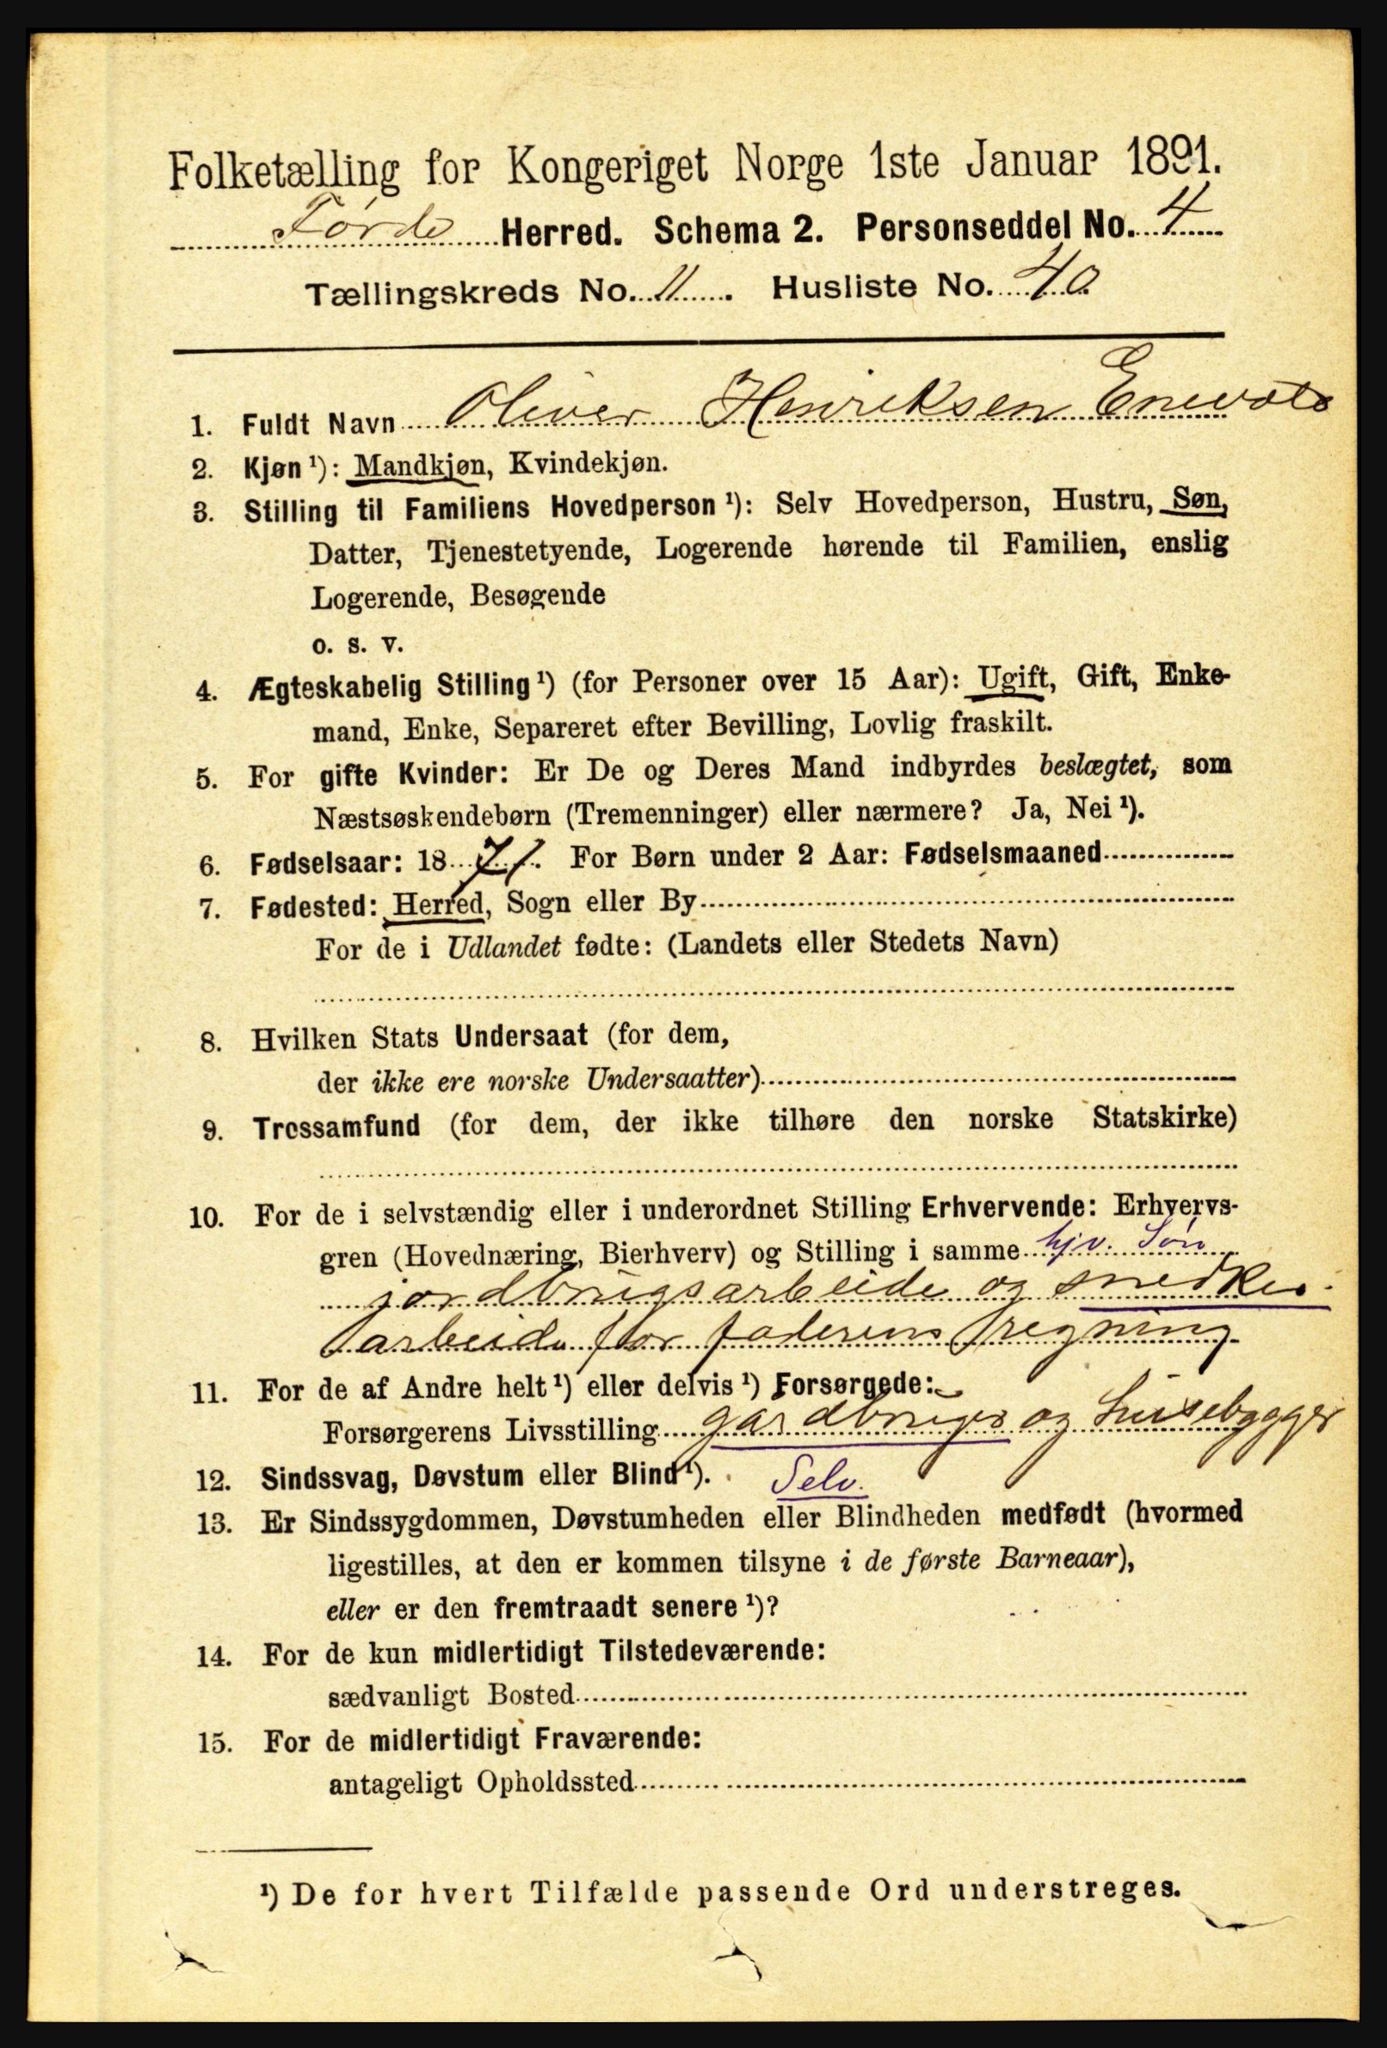 Folketælling for Kongeriget Norge 1ste Januar 1891.
Førde Herred. Schema 2. Personseddel No. 4
Tællingskreds No. 11. Husliste No. 40
1. Fuldt Navn Oliver Henriksen
2. Kjøn ¹): Mandkjøn, Kvindekjøn.
3. Stilling til Familiens Hovedperson ¹): Selv Hovedperson, Hustru, Søn,
Datter, Tjenestetyende, Logerende hørende til Familien, enslig
Logerende, Besøgende
o. s. v.
4. Ægteskabelig Stilling ¹) (for Personer over 15 Aar): Ugift, Gift, Enke-
mand, Enke, Separeret efter Bevilling, Lovlig fraskilt.
5. For gifte Kvinder: Er De og Deres Mand indbyrdes beslægtet, som
Næstsøskendebørn (Tremenninger) eller nærmere? Ja, Nei ¹).
6. Fødselsaar: 1871. For Børn under 2 Aar: Fødselsmaaned
7. Fødested: Herred, Sogn eller By
For de i Udlandet fødte: (Landets eller Stedets Navn)
8. Hvilken Stats Undersaat (for dem,
der ikke ere norske Undersaatter)
9. Trossamfund (for dem, der ikke tilhøre den norske Statskirke)
10. For de i selvstændig eller i underordnet Stilling Erhvervende: Erhvervs-
gren (Hovednæring, Bierhverv) og Stilling i samme hjv. Søn
jordbrugsarbeide og snedker
arbeide for faderens regning
11. For de af Andre helt ¹) eller delvis ¹) Forsørgede:
Forsørgerens Livsstilling gardbruger og husebygger
12. Sindssvag, Døvstum eller Blind ¹). Selv.
13. Er Sindssygdommen, Døvstumheden eller Blindheden medfødt (hvormed
ligestilles, at den er kommen tilsyne i de første Barneaar),
eller er den fremtraadt senere ¹)?
14. For de kun midlertidigt Tilstedeværende:
sædvanligt Bosted
15. For de midlertidigt Fraværende:
antageligt Opholdssted
¹) De for hvert Tilfælde passende Ord understreges.